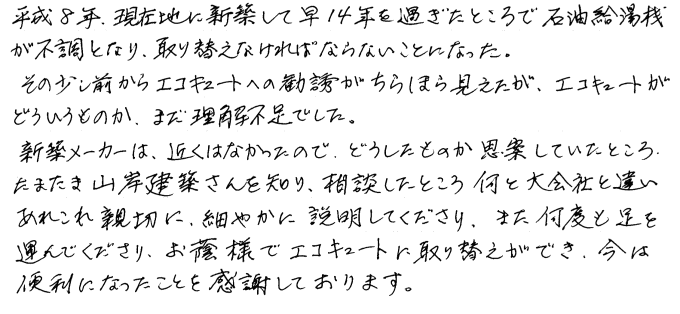 平成8年、現在地に新築して早14年を過ぎたところで石油給湯機
が不調となり、取り替えなければならないことになった。
その少し前からエコキュートへの勧誘がちらほら見えたが、エコキュートが
どういうものか、まだ理解不足でした。
新築メーカーは、近くはなかったので、どうしたものか思案していたところ、
たまたま山岸建築さんを知り、相談したところ何と大会社と違い
あれこれ親切に、細やかに説明してくださり、また何度も足を
運んでくださり、お蔭様でエコキュートに取り替えができ、今は
便利になったことを感謝しております。